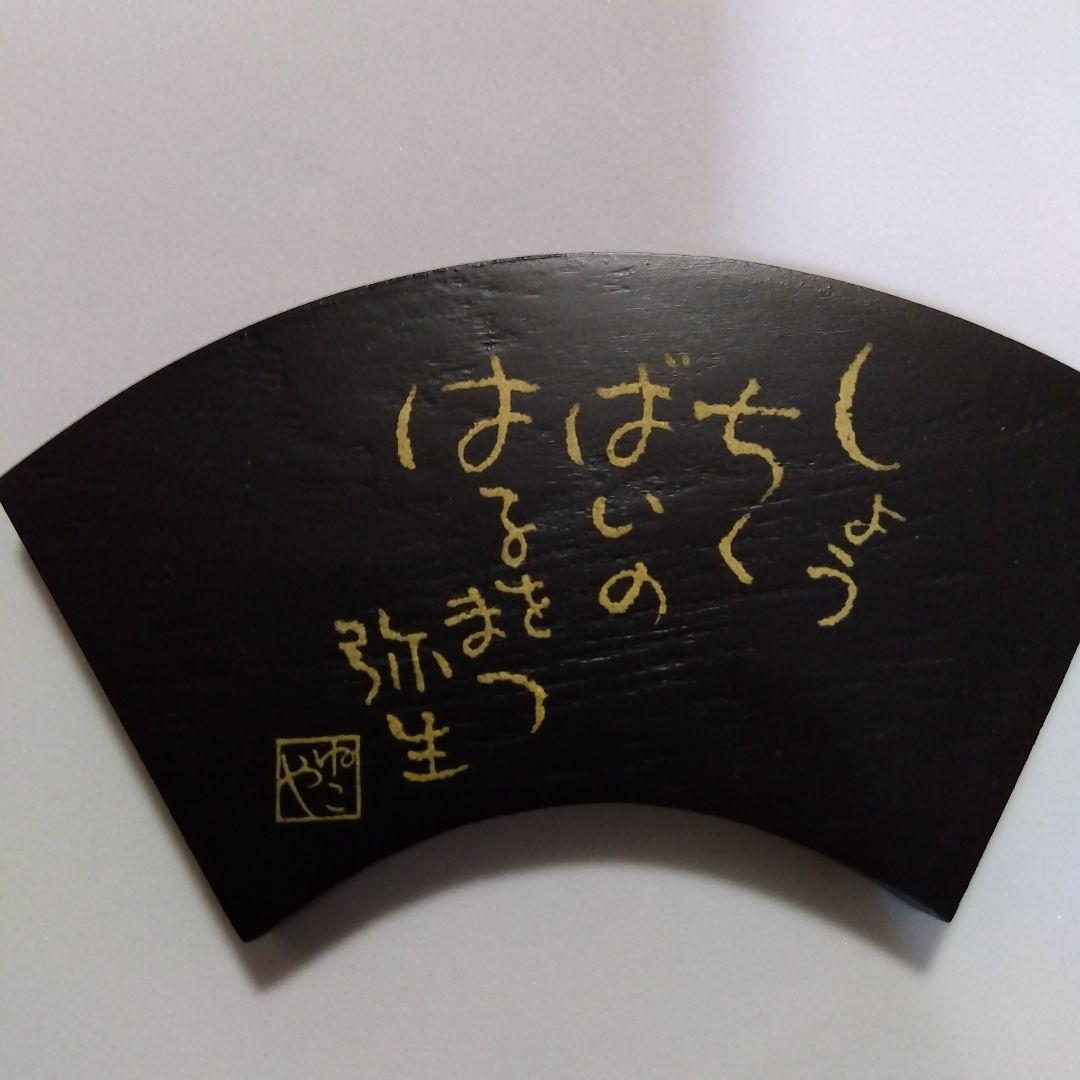 しょう
ちく
ばいの
はるを
まつ
弥生
ゆこ
や